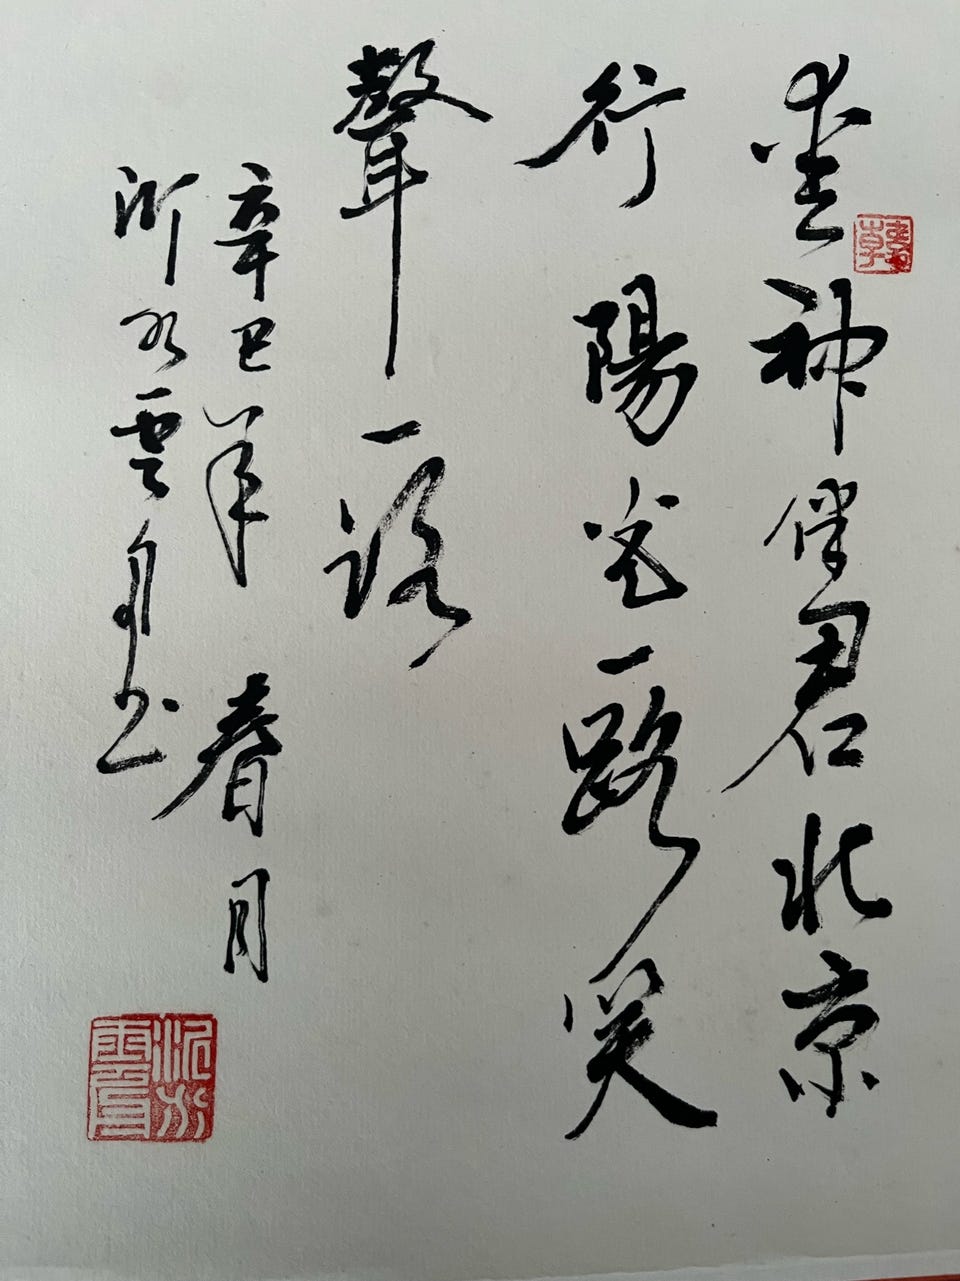 神伴君北京
行陽光一路笑
聲一路
辛巳年春月
沂水雲书
韓
沂水雲